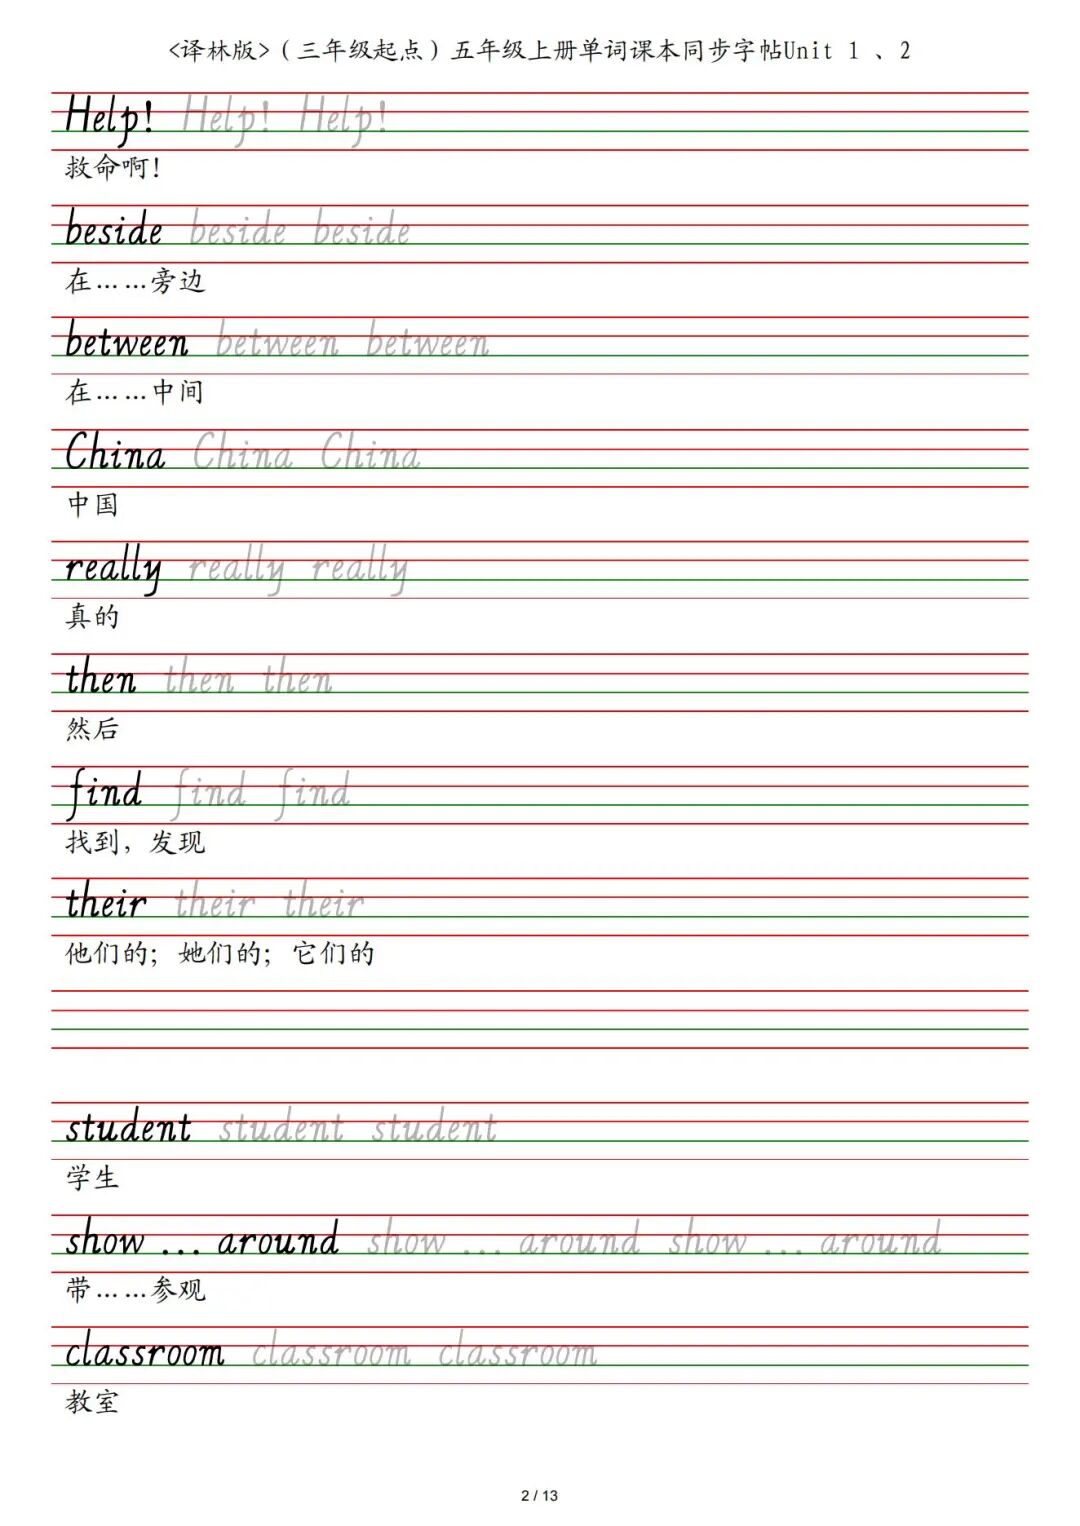 <译林版>（三年级起点）五年级上册单词课本同步字帖Unit 1 、2
Help! Help! Help!
救命啊!
beside beside beside
在……旁边
between between between
在……中间
China China China
中国
really really really
真的
then then then
然后
find find find
找到，发现
their their their
他们的；她们的；它们的
student student student
学生
show ... around show ... around show ... around
带……参观
classroom classroom classroom
教室
2 / 13